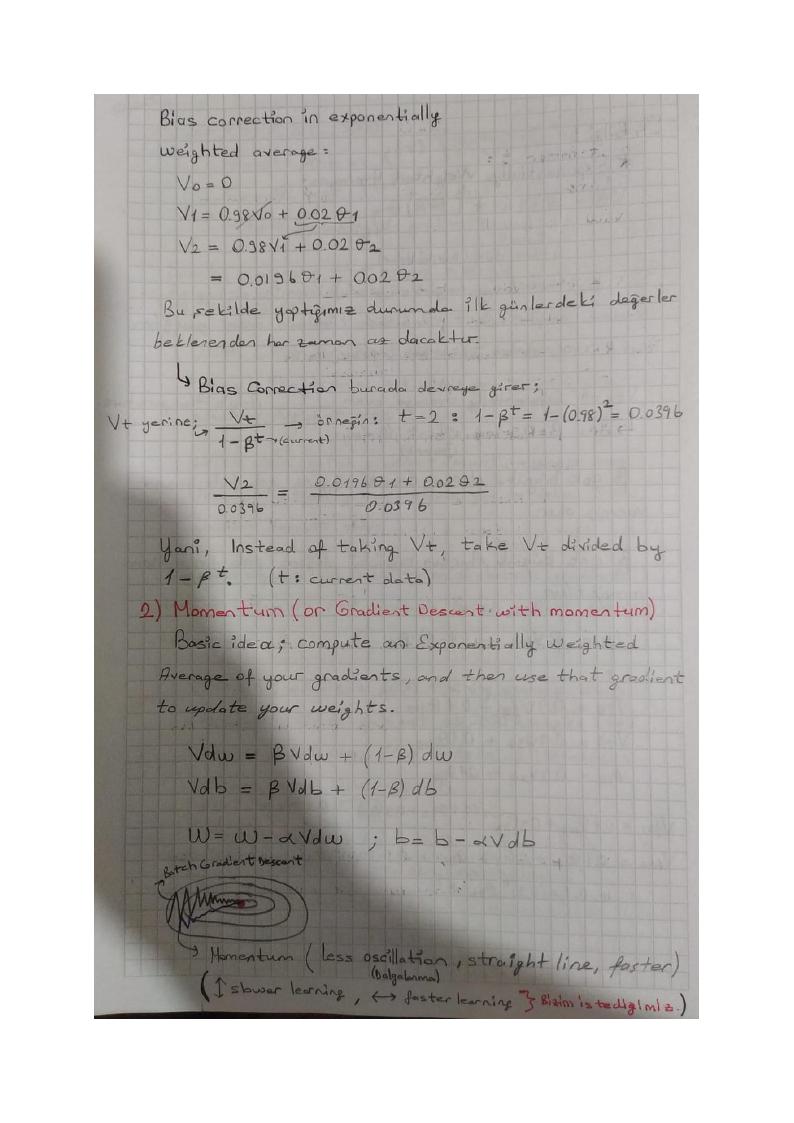 Bias correction in exponentially
weighted average:
V0 = 0
V1 = 0.98V0 + 0.02 θ1
V2 = 0.98V1 + 0.02 θ2
= 0.0196 θ1 + 0.02 θ2
Bu şekilde yaptığımız durumda ilk günlerdeki değerler
beklenenden her zaman az olacaktır.
↳ Bias Correction burada devreye girer;
Vt yerine; → Vt / 1 - β^t → (current) → örneğin: t = 2 : 1 - β^t = 1 - (0.98)^2 = 0.0396
V2 / 0.0396 = 0.0196 θ1 + 0.02 θ2 / 0.0396
Yani, Instead of taking Vt, take Vt divided by
1 - β^t. (t: current data)
2) Momentum (or Gradient Descent with momentum)
Basic idea; compute an Exponentially Weighted
Average of your gradients, and then use that gradient
to update your weights.
Vdw = β Vdw + (1-β) dw
Vdb = β Vdb + (1-β) db
W = w - αVdw ; b = b - αVdb
Batch Gradient Descent
→ Momentum (less oscillation, straight line, faster)
(Dalgalanma)
(↕ slower learning, ↔ faster learning } Bizim istediğimiz.)